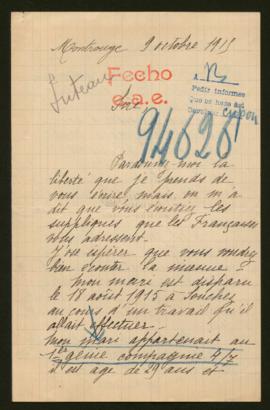 Montrouge 9 octobre 1915
Juteau
Fecho
e.a.e.
Sire
A
Pedir informes
94626
Pardonnez-moi la
liberté que je prends de
vous écrire, mais on m'a
dit que vous écoutiez les
suppliques que les Françaises
vous adressent.
J'ose espérer que vous voudrez
bien écouter la mienne
mon mari est disparu
le 18 août 1915 à Souchez
au cours d'un travail qu'il
allait effectuer.
mon mari appartenait au
1er génie compagnie 4/7
il est agé de 29 ans et